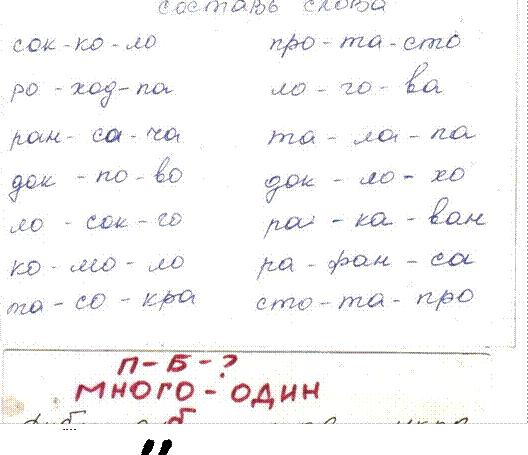 составь слова
сок-ко-ло
про-та-сто
ро-ход-па
ло-го-ва
ран-са-ча
та-ла-па
док-по-во
док-ло-хо
ло-сок-го
ра-ка-ван
ко-мо-ло
ра-фан-са
та-со-кра
сто-та-про
П-Б-?
МНОГО-ОДИН